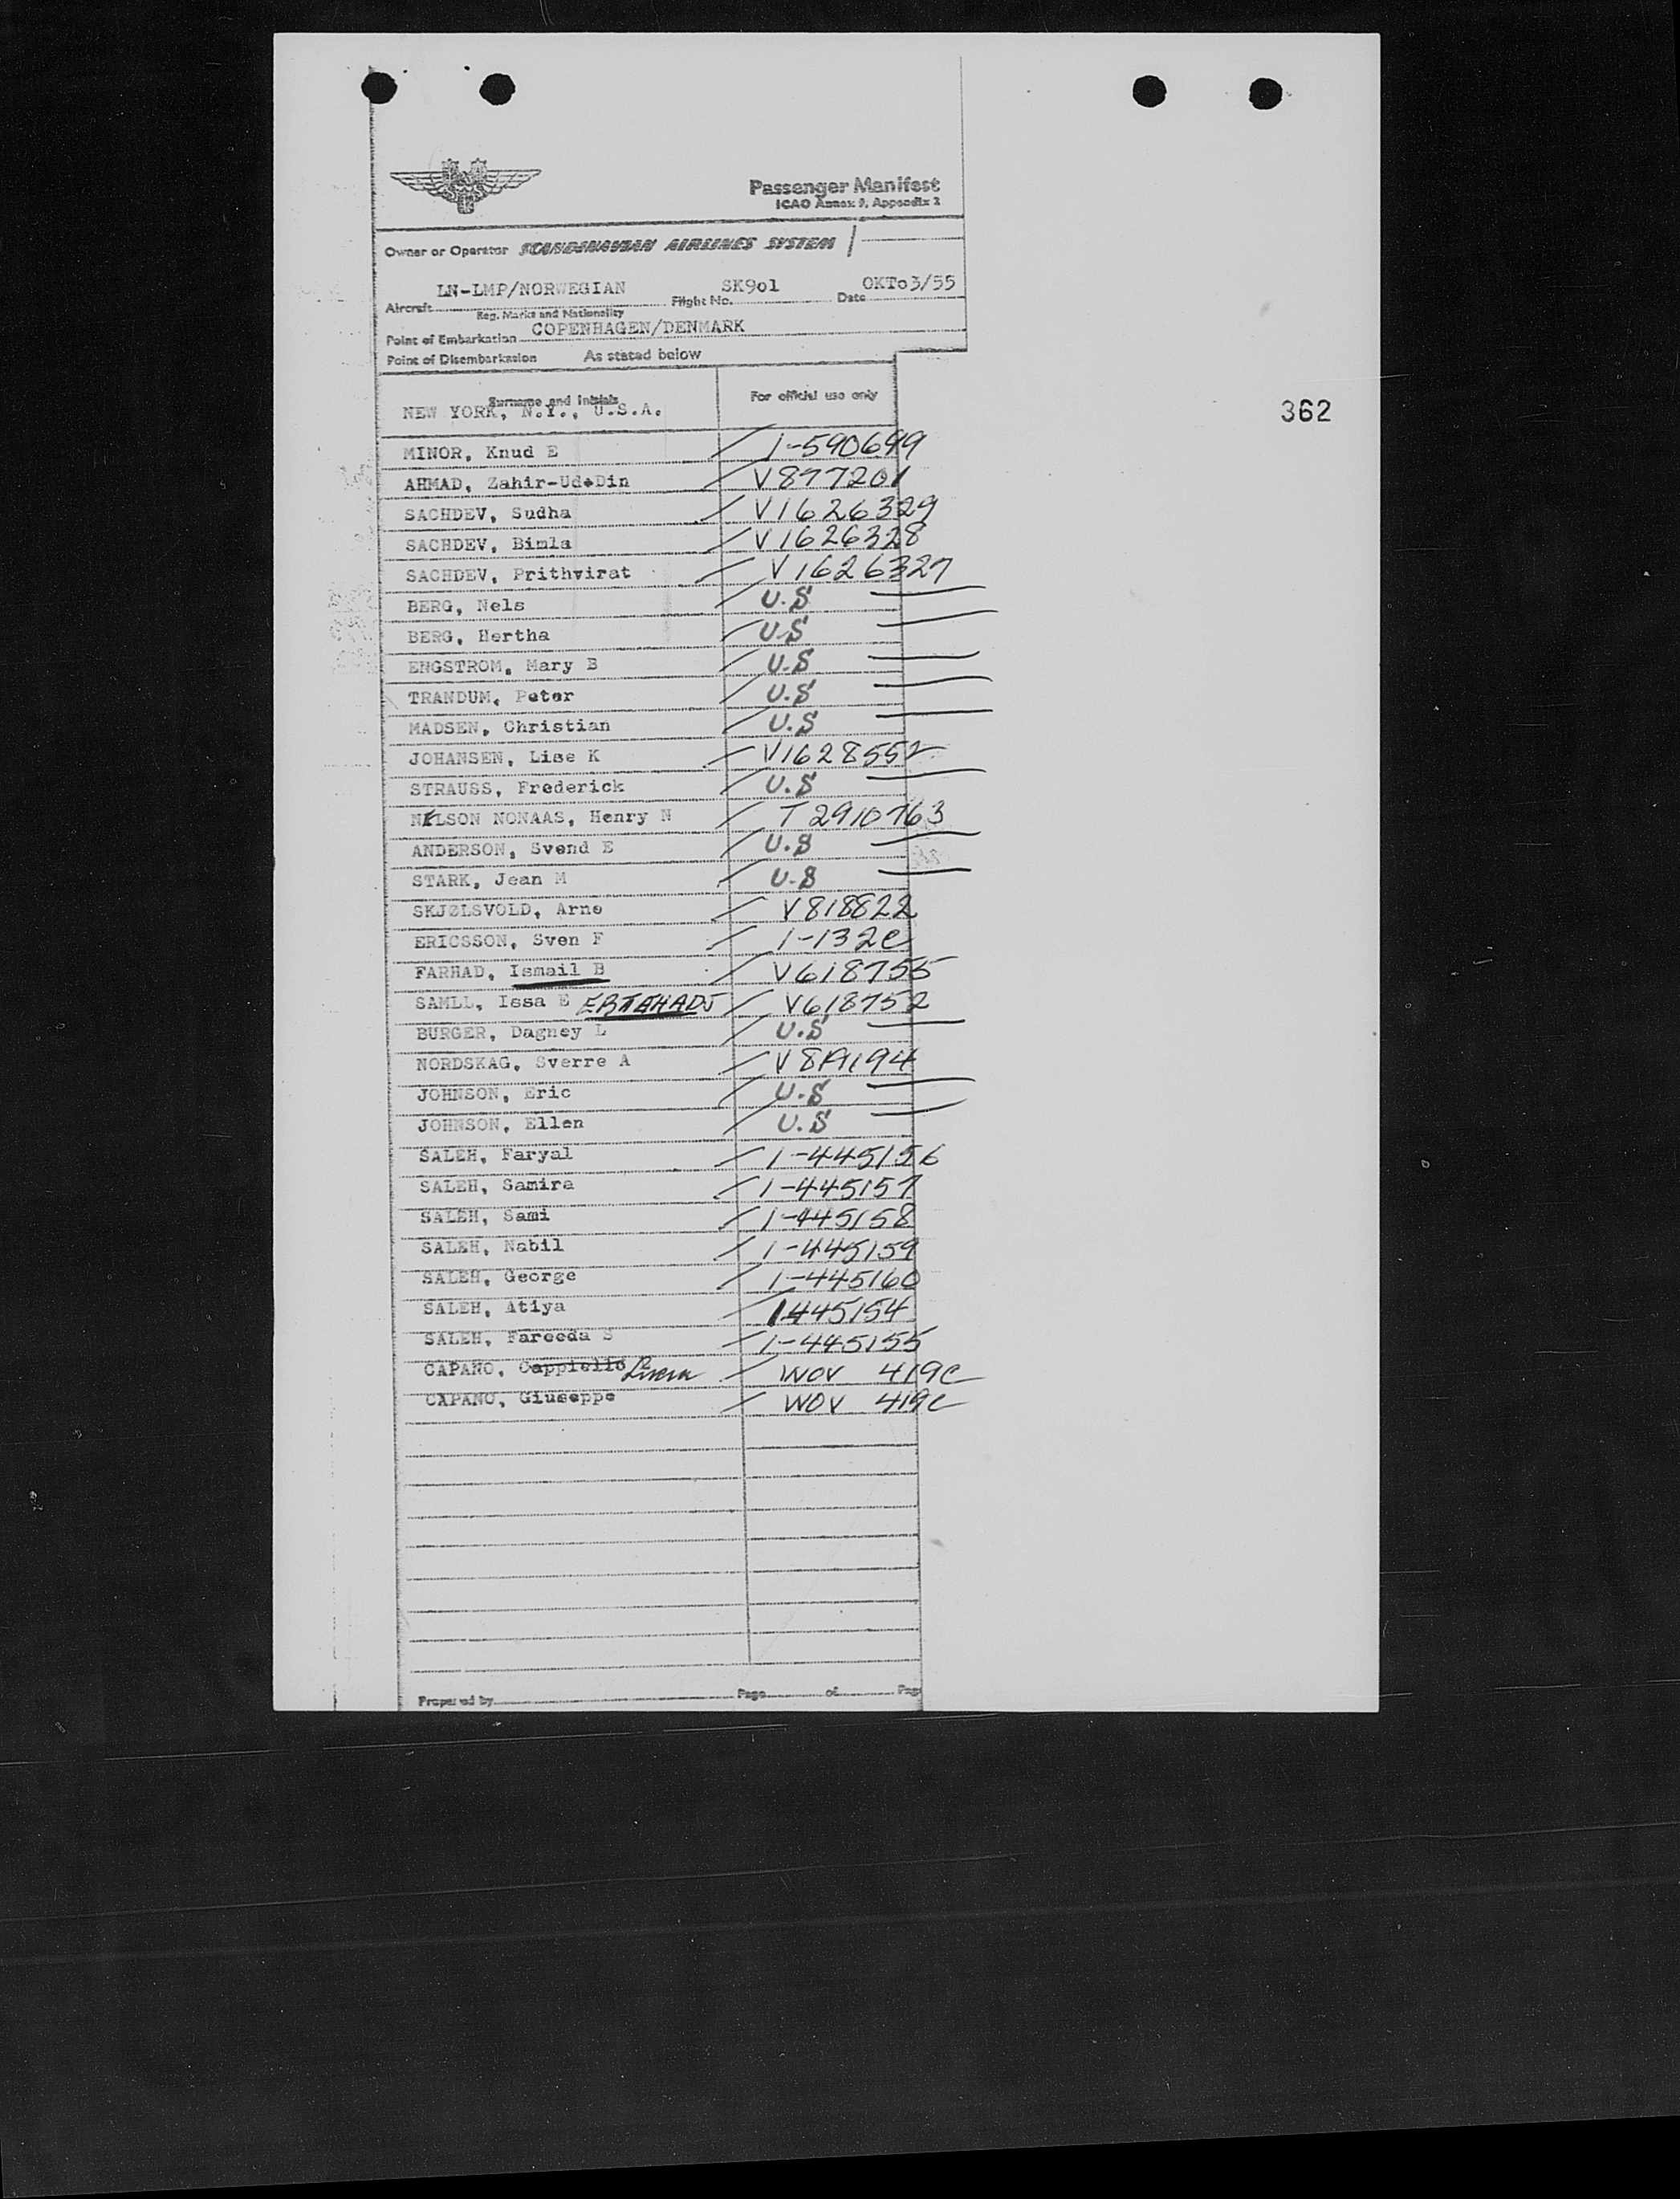 Passenger Manifest
ICAO Annex 9, Appendix 2
Owner or Operator SCANDINAVIAN AIRLINES SYSTEM
Aircraft LN-LMP/NORWEGIAN Flight No. SK9o1 Date OKTo3/55
Reg. Marks and Nationality
Point of Embarkation COPENHAGEN/DENMARK
Point of Disembarkation As stated below
Surname and Initials For official use only
NEW YORK, N.Y., U.S.A.
362
MINOR, Knud E 1-590699
AHMAD, Zahir-Ud-Din V877201
SACHDEV, Sudha V1626329
SACHDEV, Bimla V1626328
SACHDEV, Prithvirat V1626327
BERG, Nels U.S
BERG, Hertha U.S
ENGSTROM, Mary B U.S
TRANDUM, Peter U.S
MADSEN, Christian U.S
JOHANSEN, Lise K V1628552
STRAUSS, Frederick U.S
NELSON NONAAS, Henry N T2910763
ANDERSON, Svend E U.S
STARK, Jean M U.S
SKJØLSVOLD, Arne V818822
ERICSSON, Sven F 1-132c
FARHAD, Ismail B V618755
SAMLL, Issa E V618752
BURGER, Dagney L U.S
NORDSKAG, Sverre A
JOHNSON, Eric U.S
JOHNSON, Ellen U.S
SALEH, Faryal 1-445156
SALEH, Samira 1-445157
SALEH, Sami 1-445158
SALEH, Nabil 1-445159
SALEH, George 1-445160
SALEH, Atiya 1445154
SALEH, Fareeda S 1-445155
CAPANO, Cappiello WOV 419c
CAPANO, Giuseppe WOV 419c
Prepared by Page of Page